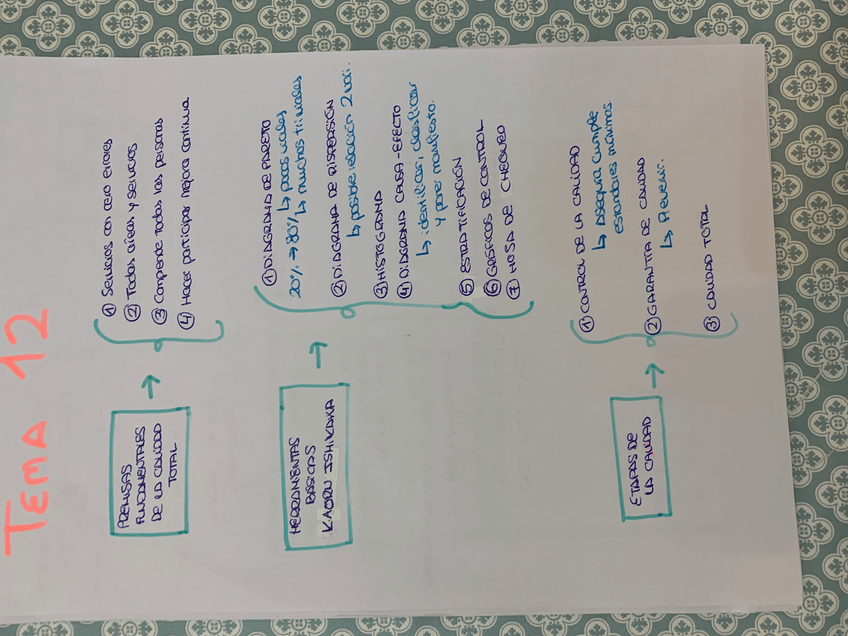 TEMA 12
PREMISAS
FUNDAMENTALES
DE LA CALIDAD
TOTAL
→
① Servicios con cero errores
② Todas áreas y servicios
③ Comprende todas las personas
④ Hacer participar mejora continua
HERRAMIENTAS
BÁSICAS
KAORU ISHIKAWA
→
① DIAGRAMA DE PARETO
20% → 80% ↳ pocos vitales
↳ muchos triviales
② DIAGRAMA DE DISPERSIÓN
↳ posible relación 2 vari.
③ HISTOGRAMA
④ DIAGRAMA CAUSA-EFECTO
↳ identifican, clasifican
y poner manifiesto.
⑤ ESTRATIFICACIÓN
⑥ GRÁFICOS DE CONTROL
⑦ HOJA DE CHEQUEO
ETAPAS DE
LA CALIDAD
→
① CONTROL DE LA CALIDAD
↳ Asegura cumple
estandares máximos
② GARANTIA DE CALIDAD
↳ Prevenir.
③ CALIDAD TOTAL